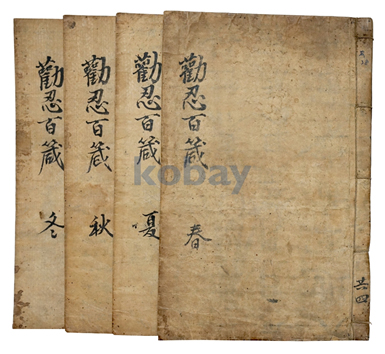 勸忍百箴
春
共四
勸忍百箴
夏
勸忍百箴
秋
勸忍百箴
冬
kobay